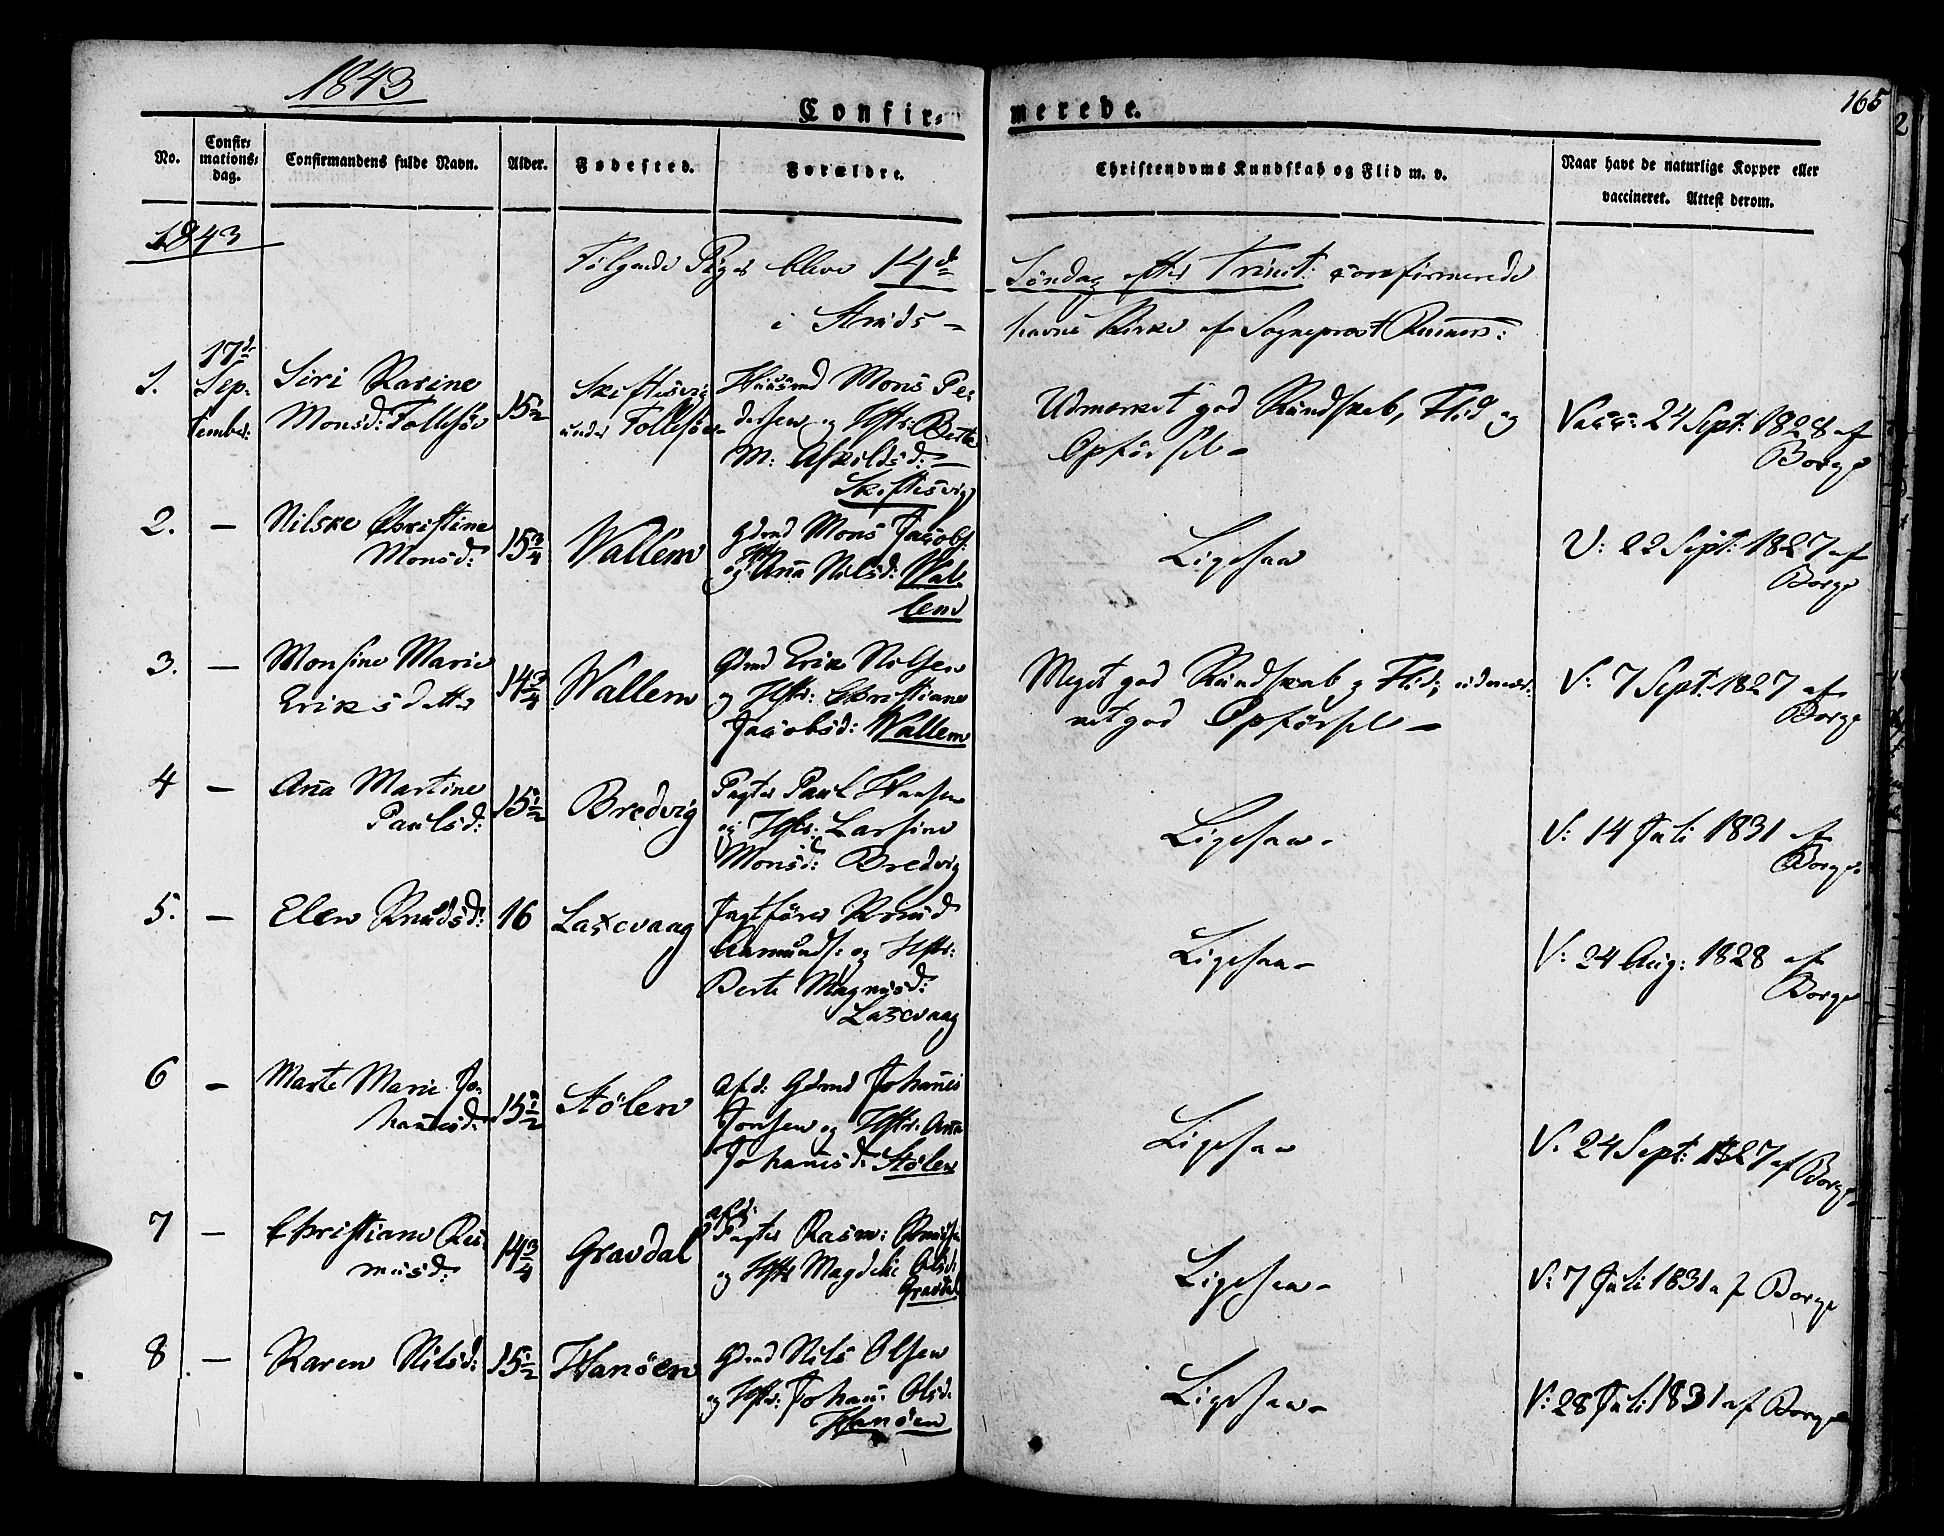 1843
165
Confir- merede.
No. Confir- mations- dag. Confirmandens fulde Navn. Alder. Fødested. Forældre. Christendoms Kundskab og Flid m. v. Naar havt de naturlige Kopper eller vaccineret. Attest derom.
1843
Følgende Piger bleve 14de Söndag efter Trinit: confirmerede
i Strids- havns Kirke af Sogneprost
1. 17de Sep- tember:
Siri Karine
Monsd: Follesöe
15½
Skeftesvig
under Follesöe
Huusmd Mons Pe-
dersen og Hstr: Berthe
M: Askildsd: -
Skeftesvig
Udmærket god Kundskab, Flid og
Opförsel -
Vacc: 24 Sept: 1828 af
Borge
2. -
Nilske Christine
Monsd:
15¾
Wallem
Gdmd Mons Jacobs:
og Hstr Anna Nilsd: Wal-
lem
Ligesaa
V: 22 Sept: 1827 af
Borge
3. -
Monsine Marie
Eriksdatter
14¾
Wallem
Gdmd Erik Nilsen
og Hstr: Christiane
Jacobsd: Wallem
Meget god Kundskab og Flid; udmær-
ket god Opförsel -
V: 7 Sept: 1827 af
Borge
4 -
Anna Martine
Paulsd:
15½
Bredvig
Pagter Paul Hansen
og Hstr: Larsine
Monsd: Bredvig
Ligesaa -
V: 14 Juli 1831 af
Borge
5. -
Elen Knudsd:
16
Laxevaag
Jagtförer Knud
Aamunds: og Hstr:
Berte Magnusd:
Laxevaag
Ligesaa -
V: 24 Aug: 1828 af
Borge
6 -
Marte Marie Jo-
hannesd:
15½
Stölen
Afd: Gdmd Johannes
Jonsen og Hstr: Anna
Johannesd: Stölen
Ligesaa
V. 24 Sept: 1827 af Borge
7 -
Christiane Ras-
musd:
14¾
Gravdal
afd:
Pagter Rasm: Knudsen
og Hstr Magdele Olsd:
Gravdal
Ligesaa -
V: 7 Juli 1831 af Borge
8 -
Karen Nilsd:
15½
Hanöen
Gdmd Nils Olsen
og Hstr: Johan: Olsd:
Hanöen
Ligesaa -
V: 28 Juli 1831 af Borge